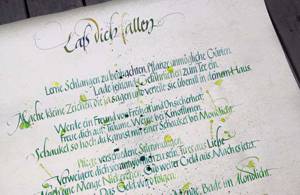 Laß dich fallen
Lerne Schlangen zu beobachten. Pflanze unmögliche Gärten.
Lade jemand Gefährlichen zum Tee ein.
Mache kleine Zeichen, die ja sagen und verteile sie überall in deinem Haus.
Werde ein Freund von Freiheit und Unsicherheit.
Freue dich auf Träume. Weine bei Kinofilmen.
Schaukel so hoch du kannst mit einer Schaukel bei Mondlicht.
Pflege verschiedene Stimmungen.
Verweigere dich verantwortlich zu sein. Tu es aus Liebe.
Mach eine Menge Nickerchen. Gib weiter Geld aus. Mach es jetzt.
Das Geld wird folgen.
Bade im Mondlicht.